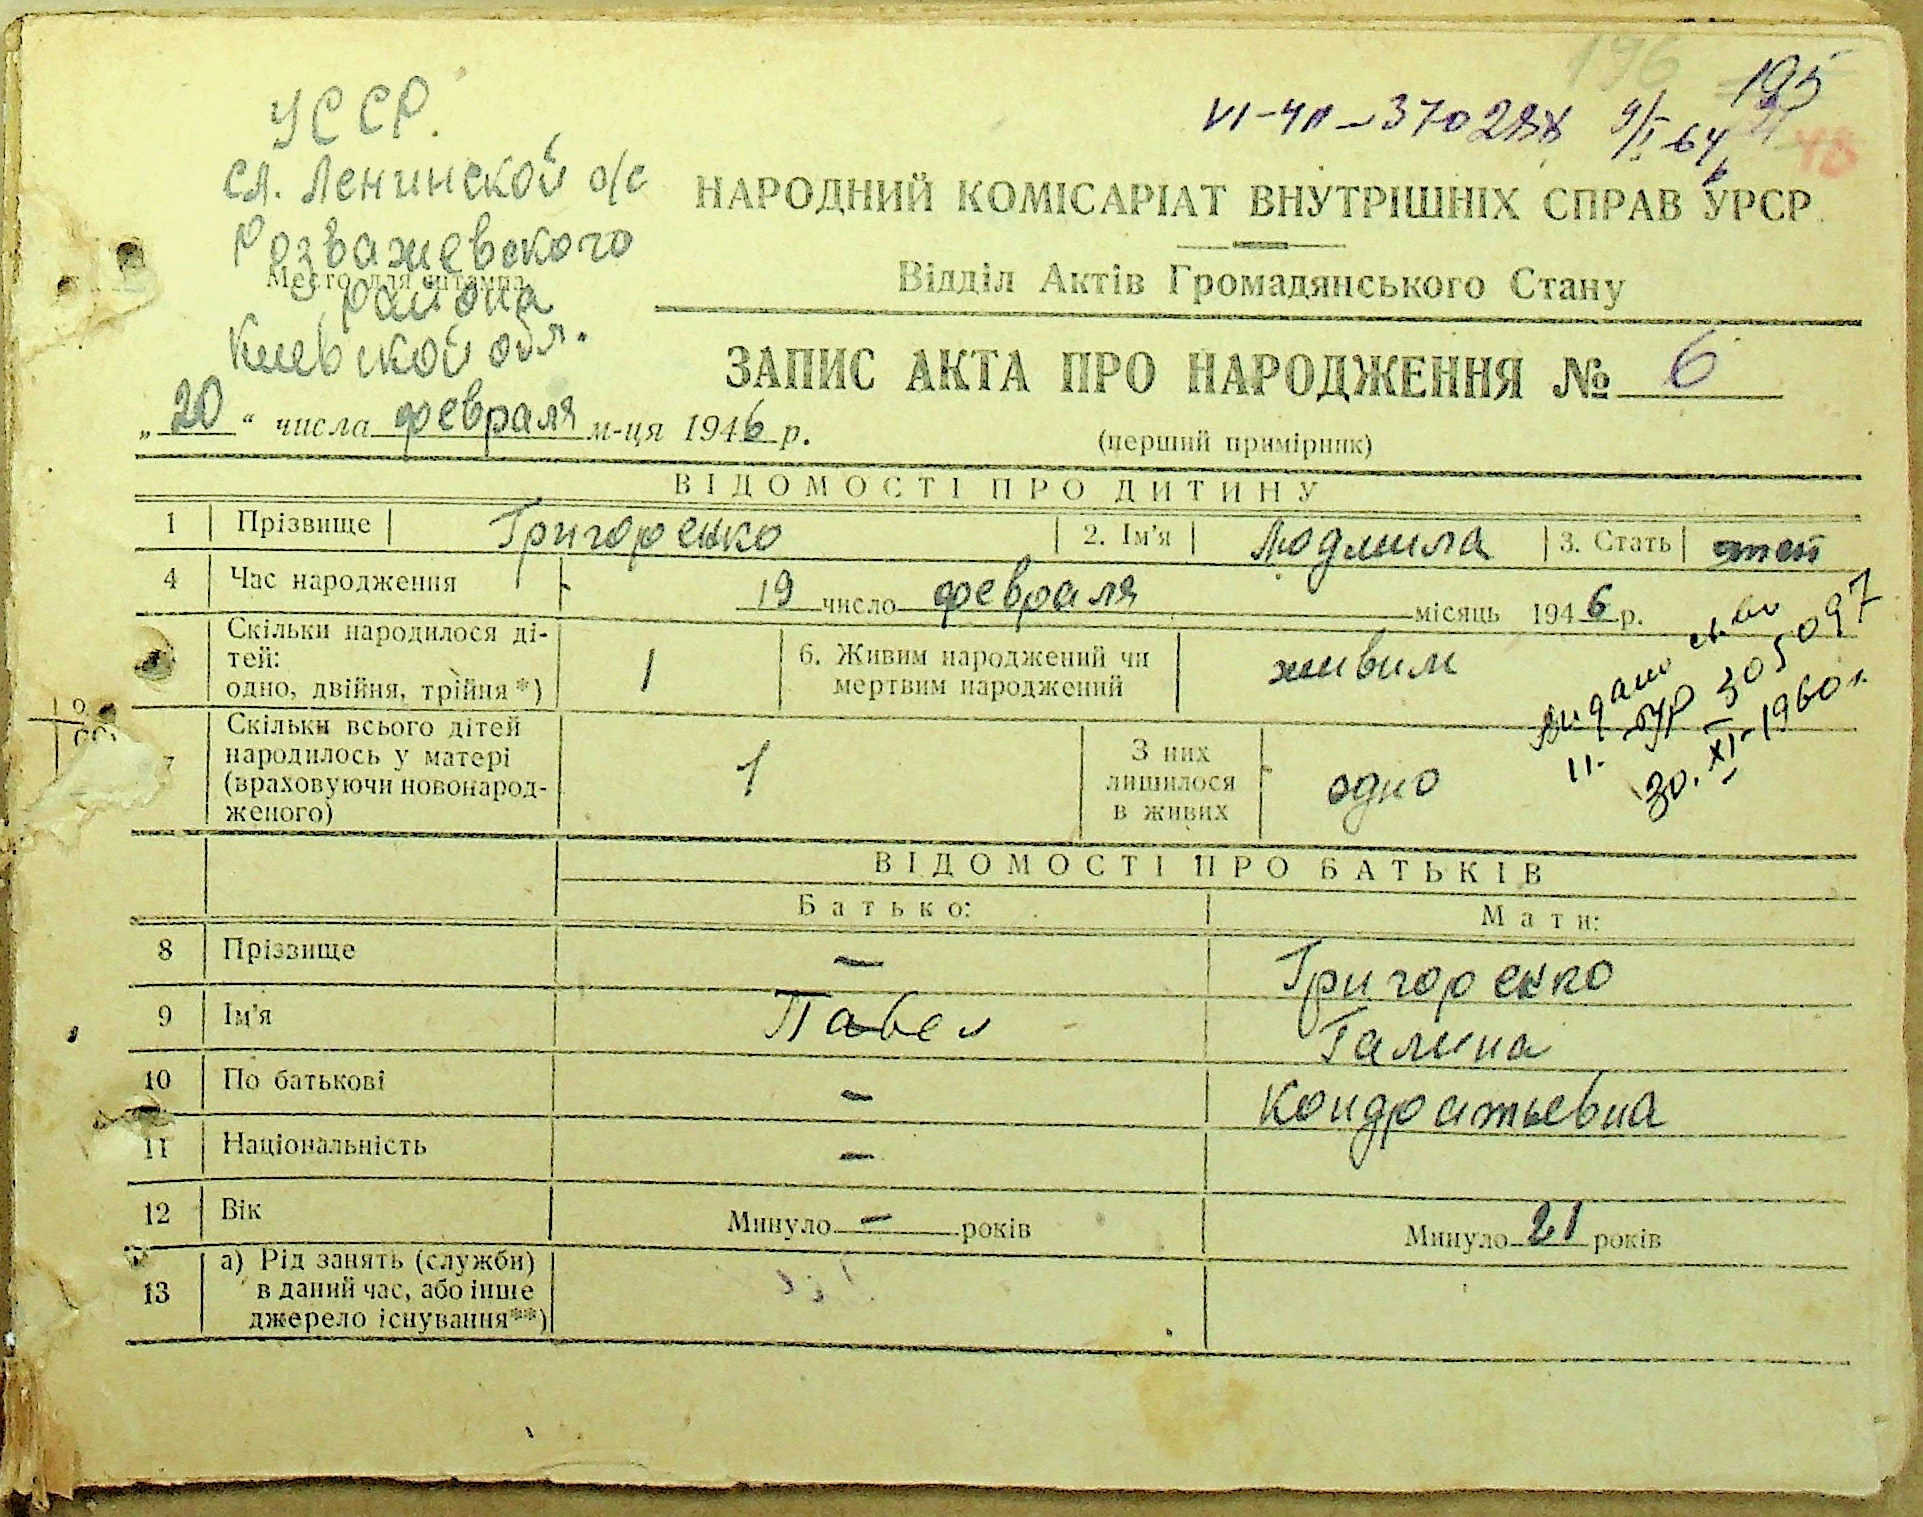 196 195
VI-ЧП-37028
9/I-64
48
УССР.
сл. Ленинской с/с
Розважевского
Место для штампа
района
Киевской обл.
НАРОДНИЙ КОМІСАРІАТ ВНУТРІШНІХ СПРАВ УРСР
Відділ Актів Громадянського Стану
ЗАПИС АКТА ПРО НАРОДЖЕННЯ № 6
„20“ числа февраля м-ця 1946 р.
(перший примірник)
ВІДОМОСТІ ПРО ДИТИНУ
1 Прізвище Григоренко 2. Ім'я Людмила 3. Стать жен
4 Час народження 19 число февраля місяць 1946 р.
Скільки народилося ді-
тей:
одно, двійня, трійня*) 1 6. Живим народжений чи
мертвим народжений живим
Видано св-во
II-БУР 305097
30.XI-1960 г.
7 Скільки всього дітей
народилось у матері
(враховуючи новонарод-
женого) 1 З них
лишилося
в живих одно
ВІДОМОСТІ ПРО БАТЬКІВ
Батько: Мати:
8 Прізвище — Григоренко
9 Ім'я Павел Галина
10 По батькові — Кондратьевна
11 Національність —
12 Вік Минуло — років Минуло 21 років
13 а) Рід занять (служби)
в даний час, або інше
джерело існування**)